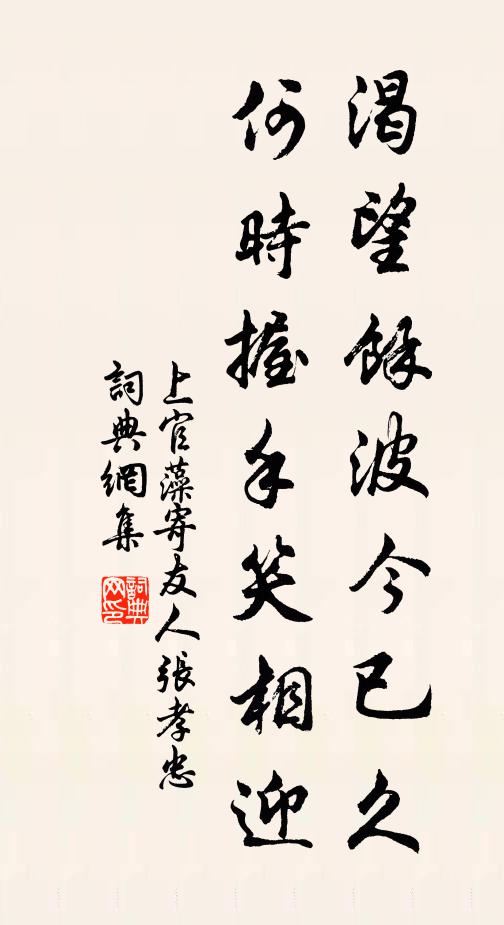 渴望餘波今已久
何時握手笑相迎
上官藻寄友人張孝忠
詞典網集
詞典
网印